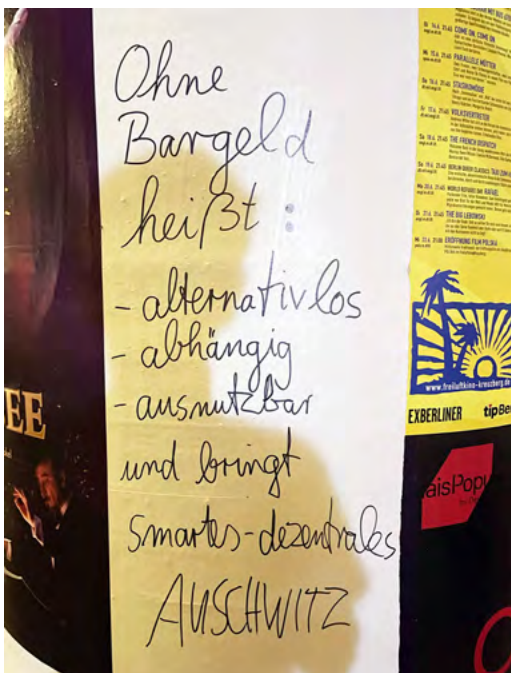 Ohne
Bargeld
heißt :
- alternativlos
- abhängig
- ausnutzbar
und bringt
smartes-dezentrales
AUSCHWITZ
EE
COME ON, COME ON
PARALLELE MÜTTER
STASIKOMÖDIE
VOLKSVERTRETER
THE FRENCH DISPATCH
THE BIG LEBOWSKI
ERÖFFNUNG FILM POLSKA
www.freiluftkino-kreuzberg.de
EXBERLINER tipBe
aisPopu